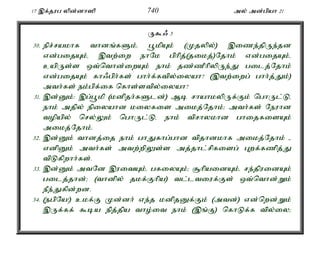 17 இக்தரப லின்னாஸி 740 அல் அன்பியா 21
ருகூஃ 3
30. நிச்சயமாக வானங்களும், பூமியும் (முதலில்) இணைந்திருந்தன
என்பதையும், இவற்றை நாமே பிரித்(தமைத்)தோம் என்பதையும்,
உயிருள்ள ஒவ்வொன்றையும் நாம் தண்ணீரிலிருந்து படைத்தோம்
என்பதையும் காஃபிர்கள் பார்க்கவில்லையா? (இவற்றைப் பார்த்தும்)
அவர்கள் நம்பிக்கை கொள்ளவில்லையா?
31. இன்னும்: இப்பூமி (மனிதர்களுடன்) ஆடி சாயாமலிருக்கும் பொருட்டு,
நாம் அதில் நிலையான மலைகளை அமைத்தோம்; அவர்கள் நேரான
வழியில் செல்லும் பொருட்டு, நாம் விசாலமான பாதைகளையும்
அமைத்தோம்.
32. இன்னும் வானத்தை நாம் பாதுகாப்பான விதானமாக அமைத்தோம் -
எனினும் அவர்கள் அவற்றிலுள்ள அத்தாட்சிகளைப் புறக்கணித்து
விடுகிறார்கள்.
33. இன்னும் அவனே இரவையும், பகலையும்; சூரியனையும், சந்திரனையும்
படைத்தான்; (வானில் தமக்குரிய) வட்டவரைக்குள் ஒவ்வொன்றும்
நீந்துகின்றன.
34. (நபியே!) உமக்கு முன்னர் எந்த மனிதனுக்கும் (அவன்) என்றென்றும்
இருக்கக் கூடிய நித்திய வாழ்வை நாம் (இங்கு) கொடுக்க வில்லை;